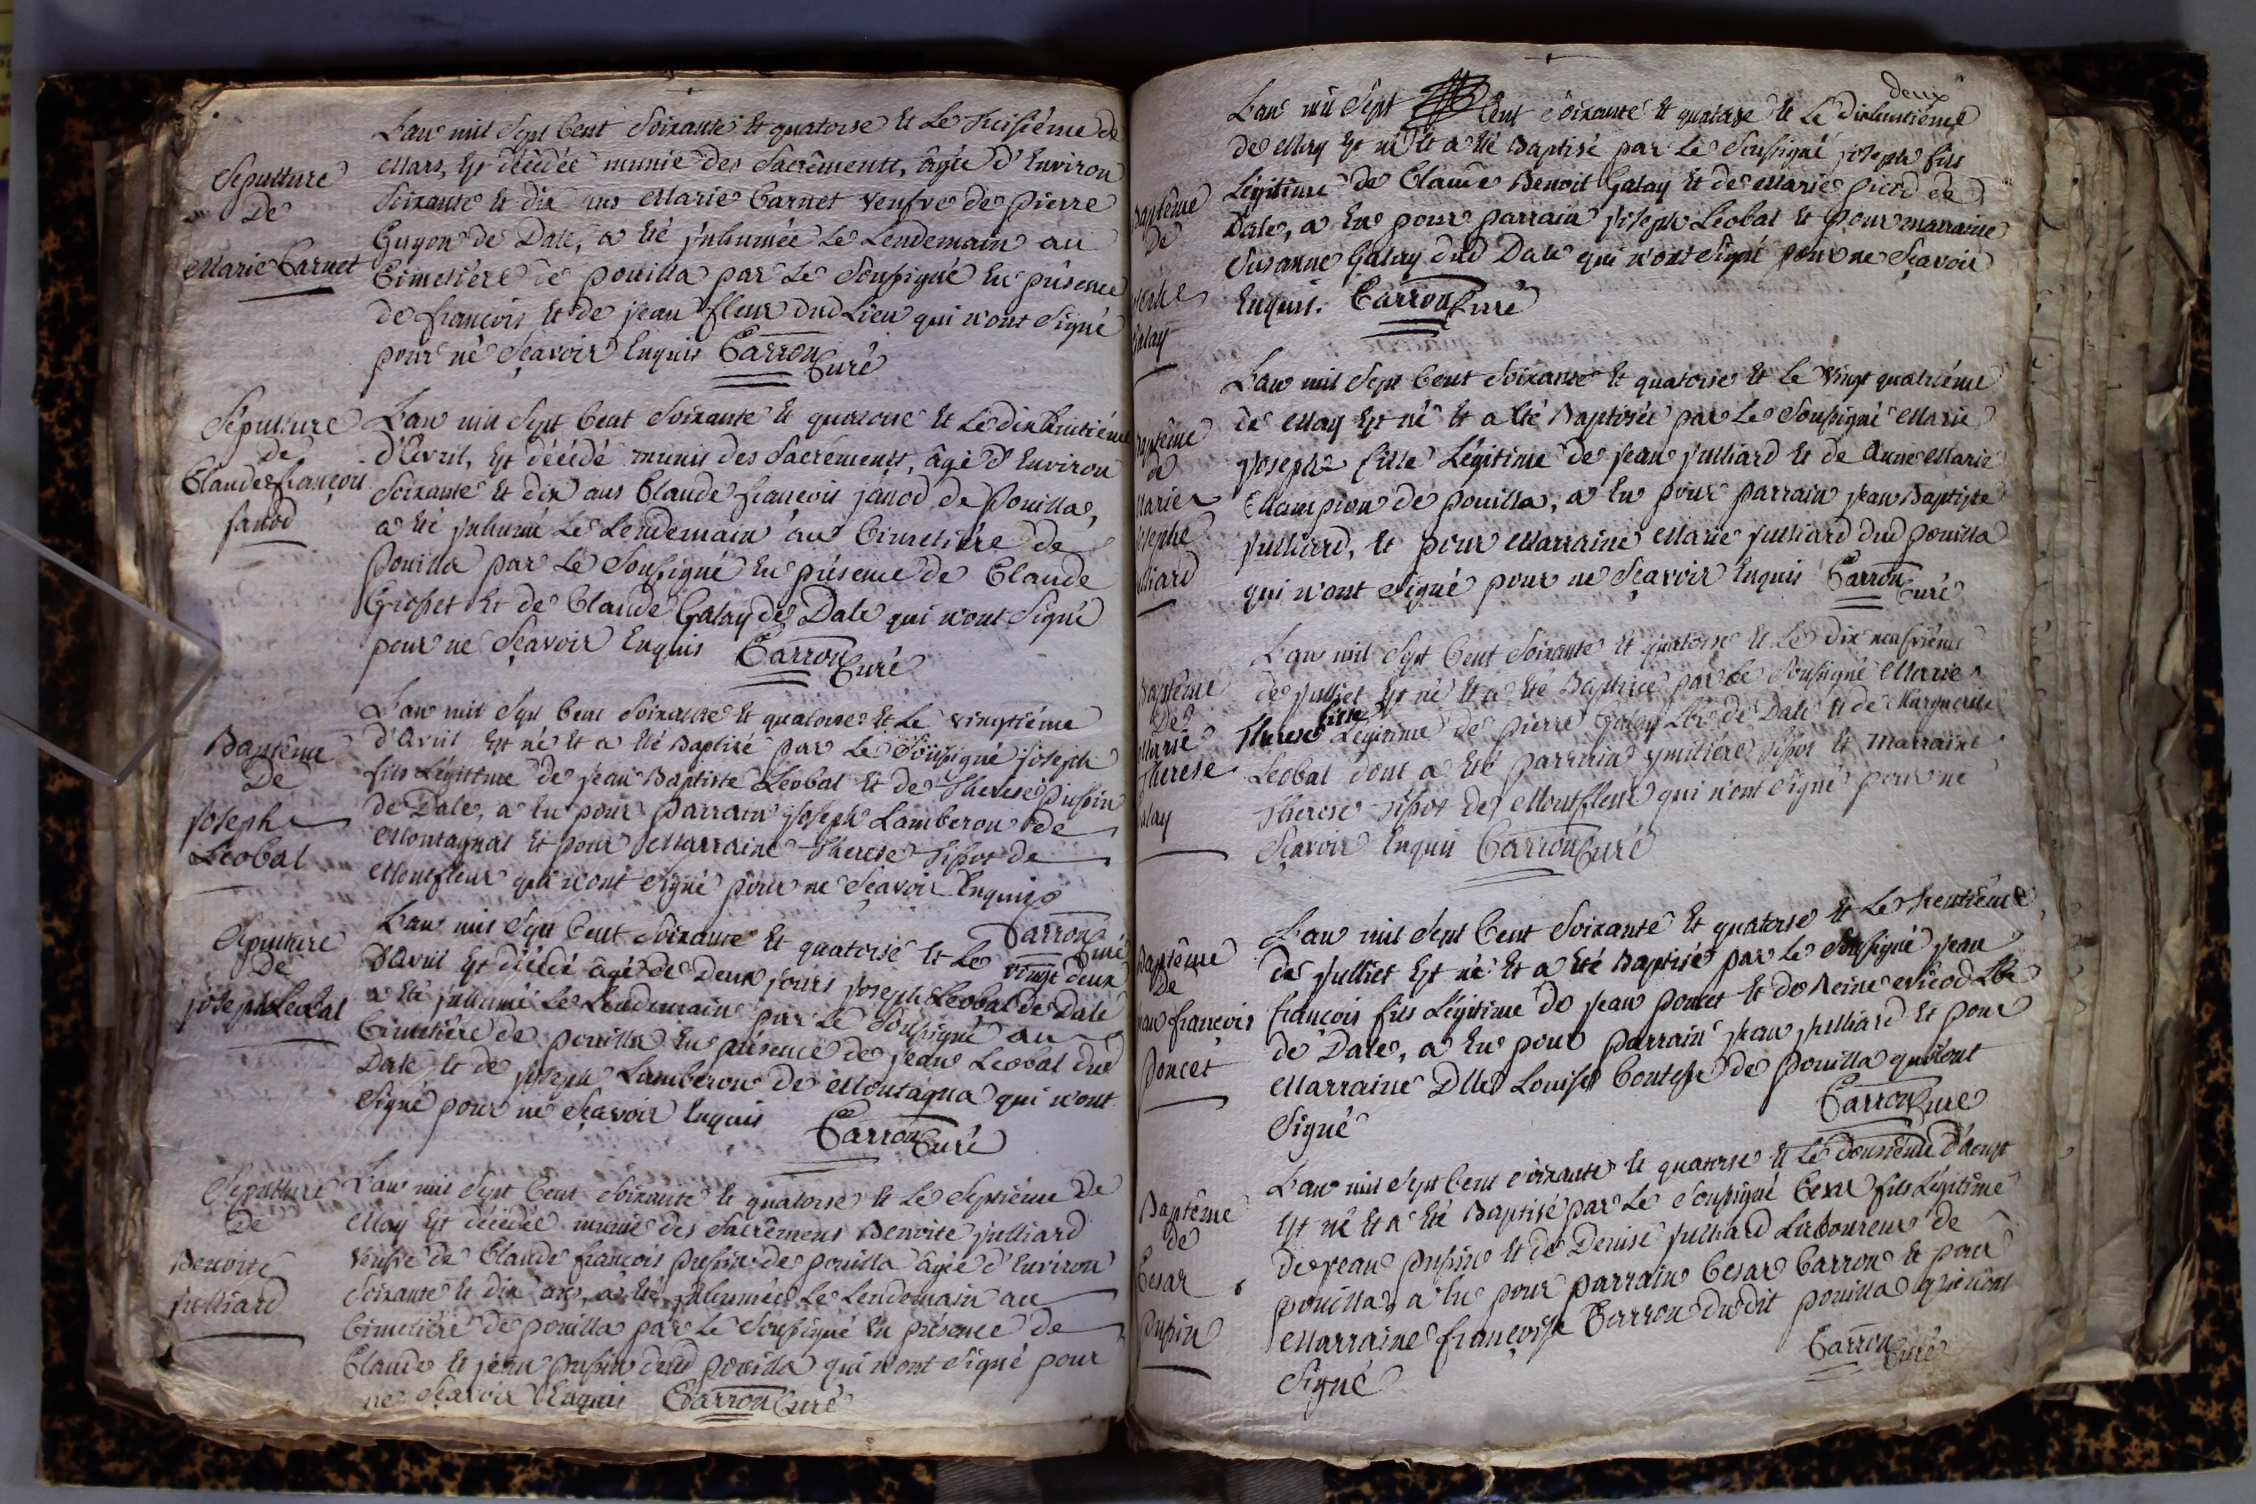 Sepulture
De
Marie Carnet
L'an mil Sept Cent Soixante Et quatorse Et Le Treisiéme de
Mars, Est décédée munie des Sacréments, âgée d'Environ
Soixante Et dix ans Marie Carnet veufve de pierre
Guyon de Dale, a Eté jnhumée Le Lendemain au
Cimetière de pouilla par Le Soussigné En présence
de françois Et de jean fleur dud Lieu qui n'ont Signé
pour ne Sçavoir Enquis Carron
Curé
Sépulture
de
Claude françois
janod
L'an mil Sept Cent Soixante Et quatorse Et Le dix huitiéme
d'Avril, Est décédé munis des Sacréments, âgé d'Environ
Soixante Et dix ans Claude françois janod de Pouilla,
a Eté jnhumé Le Lendemain au Cimetière de
Pouilla par Le Soussigné En présence de Claude
Grosset Et de Claude Galay de Dale qui n'ont Signé
pour ne Sçavoir Enquis Carron
Curé
Baptême
De
joseph
Léobal
L'an mil Sept Cent Soixante Et quatorse Et Le vingtiéme
d'Avril Est né Et a Eté Baptisé par Le Soussigné joseph
fils Légitime de jean Baptiste Léobal Et de Therese pupin
de Dale, a Eu pour parrain joseph Lamberon de
Montagnat Et pour Marraine Therese Tissot de
Montfleur qui n'ont Signé pour ne Sçavoir Enquis
Carron
Curé
Sépulture
De
joseph Léobal
L'an mil Sept Cent Soixante Et quatorse Et Le vingt deux
d'Avril Est décédé âgé de Deux jours joseph Léobal de Dale
a Eté jnhumé Le Lendemain par Le Soussigné au
Cimetière de pouilla En présence de jean Leobal dud
Dale Et de joseph Lamberon de Montagna qui n'ont
Signé pour ne Sçavoir Enquis Carron
Curé
Sepulture
De
Benoite
julliard
L'an mil Sept Cent Soixante Et quatorse Et Le Septiéme de
May Est décédée munie des Sacrémens Benoite julliard
veufve de Claude françois pupin de pouilla âgée d'Environ
Soixante Et dix ans, a Eté jnhumée Le Lendemain au
Cimetière de pouilla par Le Soussigné En présence de
Claude Et jean pupin dud pouilla qui n'ont Signé pour
ne Sçavoir Enquis Carron Curé
Baptême
De
joseph
Galay
deux
L'an mil Sept Cent Soixante Et quatorse Et Le dixhuitiéme
de May Est né Et a Eté Baptisé par Le Soussigné joseph fils
Légitime de Claude Benoit Galay Et de Marie picod de
Dale, a Eu pour parrain joseph Léobal Et pour marraine
Susanne Galay dud Dale qui n'ont Signé pour ne Sçavoir
Enquis. Carron Curé
Baptême
de
Marie
josephe
julliard
L'an mil Sept Cent Soixante Et quatorse Et Le vingt quatriéme
de May Est né Et a Eté Baptisée par Le Soussigné Marie
josephe fille Légitime de jean julliard Et de Anne Marie
Champion de pouilla, a Eu pour parrain jean Baptiste
julliard, Et pour Marraine Marie julliard dud pouilla
qui n'ont Signé pour ne Sçavoir Enquis Carron
Curé
Baptême
De
Marie
Therese
Galay
L'an mil Sept Cent Soixante Et quatorse Et Le dix neufviéme
de julliet Est né Et a Eté Baptisée par Le Soussigné Marie
fille
Therese Légitime de pierre Galay Lbr de Dale Et de Marguerite
Leobal dont a Eté parrain Tissot Et Marraine
Therese Tissot de Montfleur qui n'ont Signé pour ne
Sçavoir Enquis Carron Curé
Baptême
De
jean françois
Poncet
L'an mil Sept Cent Soixante Et quatorse Et Le Trentiéme
de julliet Est né Et a Eté Baptisé par Le Soussigné jean
françois fils Légitime de jean poncet Et de Reine Lbr
de Dale, a Eu pour parrain jean julliard Et pour
Marraine Dlle Louise Contesse de pouilla qui ont
Signé
Carron Curé
Baptême
de
Cesar
Pupin
L'an mil Sept Cent Soixante Et quatorse Et Le Dousiéme d'aoust
Est né Et a Eté Baptisé par Le Soussigné Cesar fils Légitime
de jean pupin Et de Denise julliard Laboureur de
pouilla, a Eu pour parrain Cesar Carron Et pour
Marraine françoise Carron dudit pouilla qui n'ont
Signé
Carron
Curé